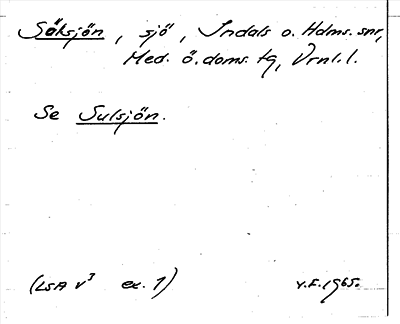 Söksjön, sjö, Indals o. Hdms. snr,
Med. ö. doms. tg, Vrnl. l.
Se Sulsjön.
(LSA V³ ex. 1) V.E. 1965.